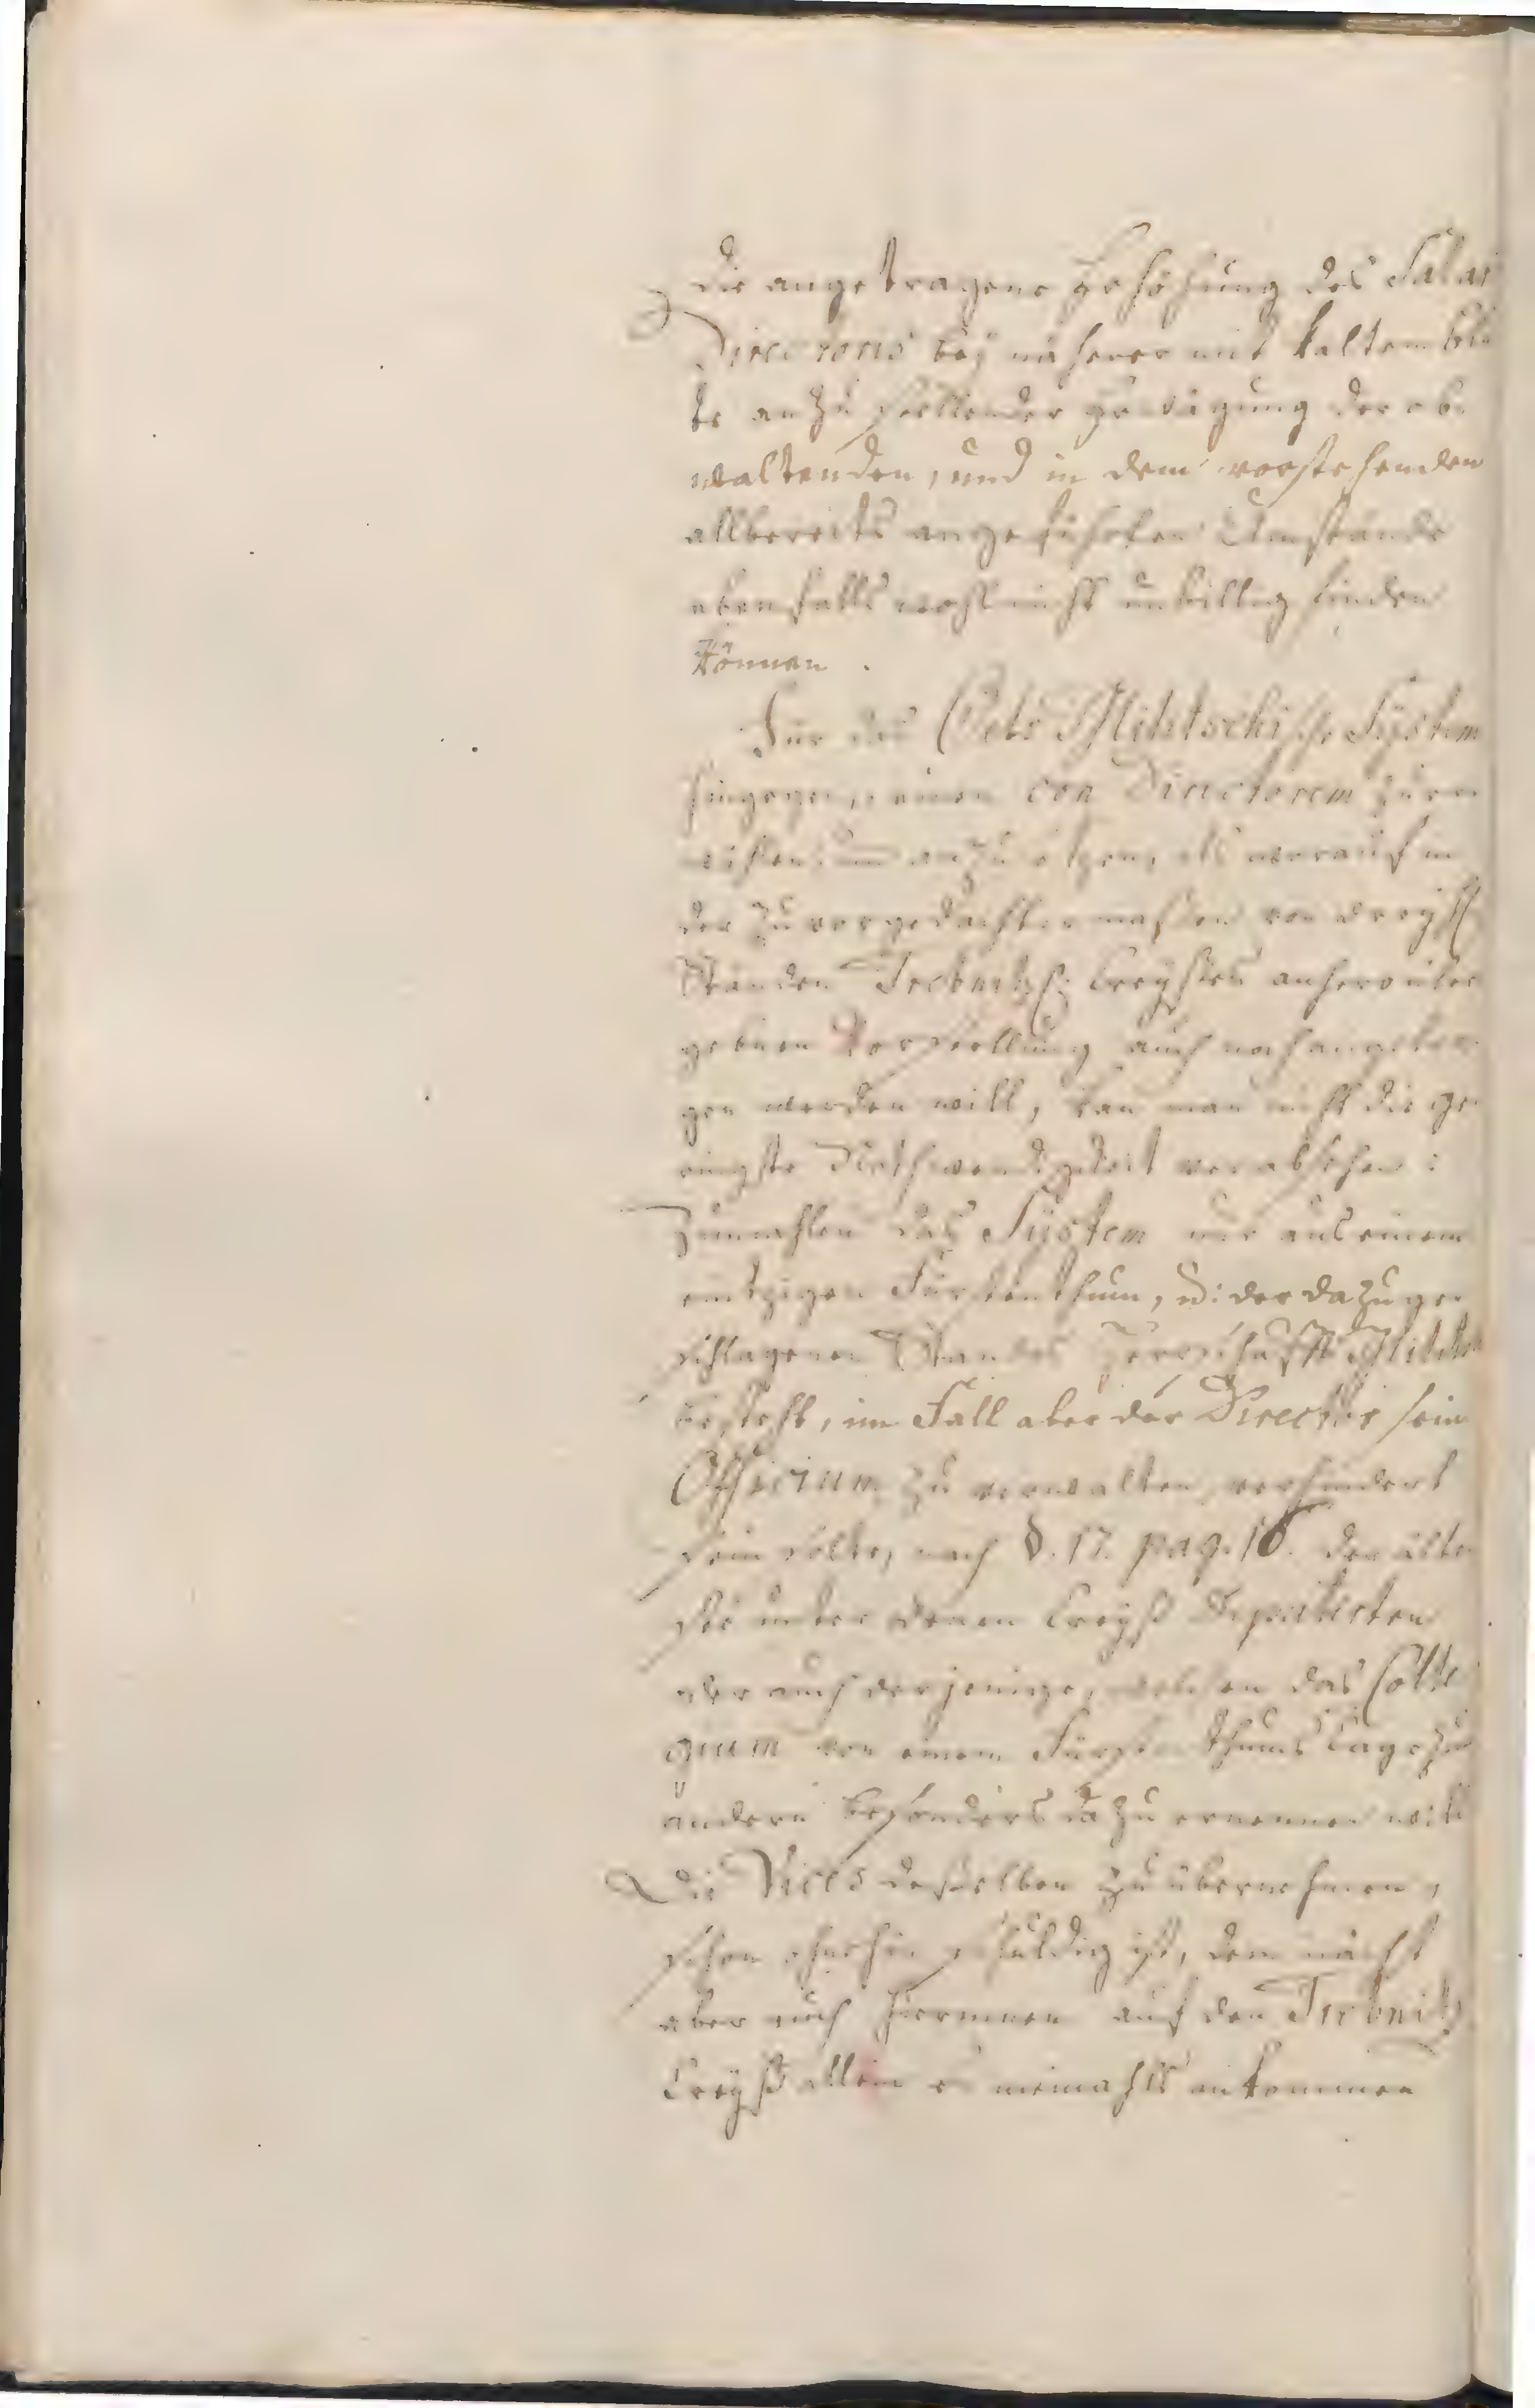 die angetragene Erhöhung des Salar
Directoris bey näherer mit kaltem Blu
te anzustellender Erwägung der ob
waltenden, und in dem vorstehenden
allbereits angeführten Umstände
ebenfalls wohl nicht unbillig finden
können.
Für das Oels Militschische System
hingegen, einen con Directorem zu er
wählen und anzusetzen, als worauf in
der zuvorgedachtermaßen von
Ständen Trebnitz Creyßes anhero über
gebnen Vorstellung auch noch angetra
gen werden will, kan man nicht die ge
ringste Nothwendigkeit vorabsehen:
Zumahlen das System nur aus einem
eintzigen Fürstenthum, u: der dazu ge
schlagenen Standes Herrschafft Militsch
besteht, im Fall aber der Director sein
Officium zu verwalten verhindert
sein solte, nach §. 17. pag. 16. der älte
ste unter denen Creyß Deputirten
oder auch derjenige, welchen das Colle
gium von einem Fürstenthums Tage zu
andern besonders dazu ernennen will
Die Vices deßelben zu übernehmen,
schon ohnehin schuldig ist, demnächst
aber auch hierinnen auf den Trebnitz
Creyß allein es niemahls ankommen